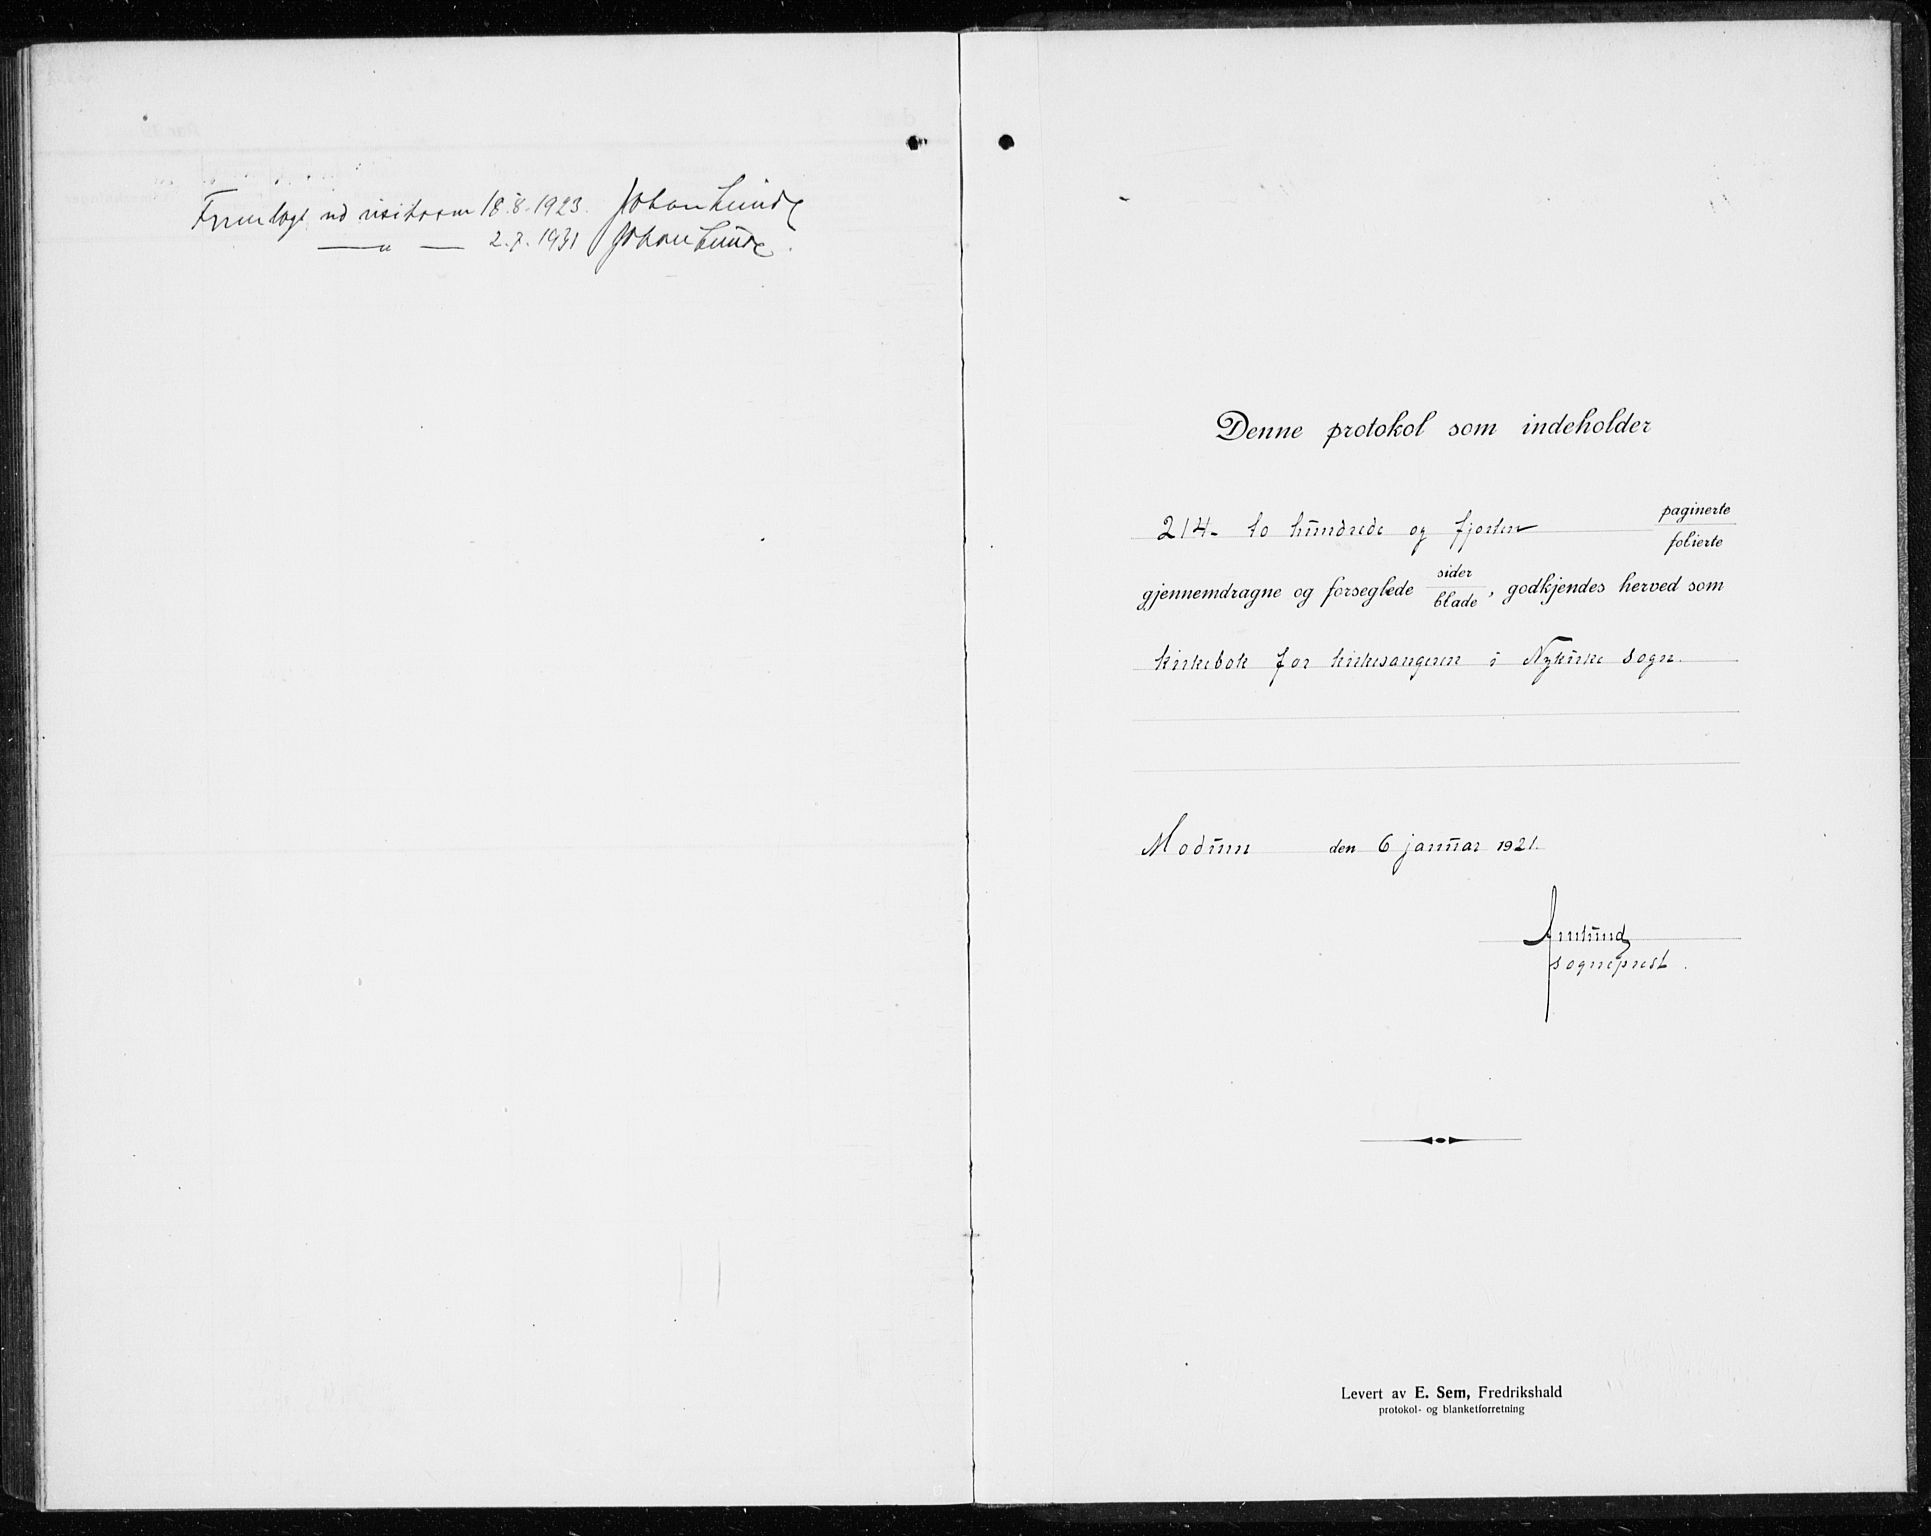 Fremlagt ved visitasen 18.8.1923. Johan Lunde
— " — 2.7.1931 Johan Lunde.
Denne protokol som indeholder
214 - to hundrede og fjorten paginerte
folierte
gjennemdragne og forseglede sider
blade, godkjendes herved som
kirkebok for kirkesangeren i Nykirke sogn.
Modum den 6 januar 1921.
Amlund
sogneprest.
Levert av E. Sem, Fredrikshald
protokol- og blanketforretning